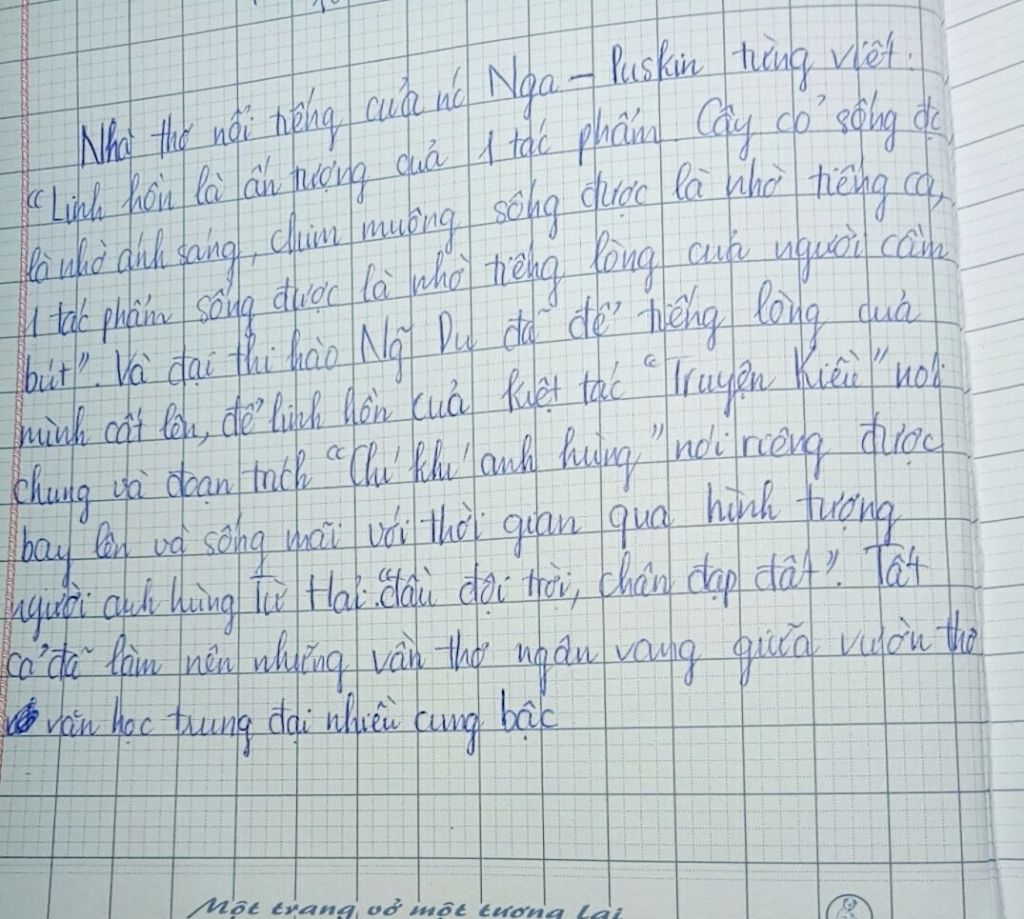 Nhà thơ nổi tiếng của nc Nga – Puskin từng viết:
"Linh hồn là ấn tượng quả 1 tác phẩm Cây cỏ sống đc
là nhờ ánh sáng, chim muông sống được là nhờ tiếng ca,
1 tác phẩm sống được là nhờ tiếng lòng của người cầm
bút". Và đại thi hào Ng̃ Du đã để tiếng lòng quả
mình cất lên, để linh hồn của kiệt tác "Truyện Kiều" nói
chung và đoạn trích "Chí khí anh hùng" nói riêng được
bay lên và sống mãi với thời gian qua hình tượng
người anh hùng Từ Hải "đầu đội trời, chân đạp đất". Tất
cả đã làm nên những vần thơ ngân vang giữa vườn thơ
văn học trung đại nhiều cung bậc
Một trang vở một tương lai